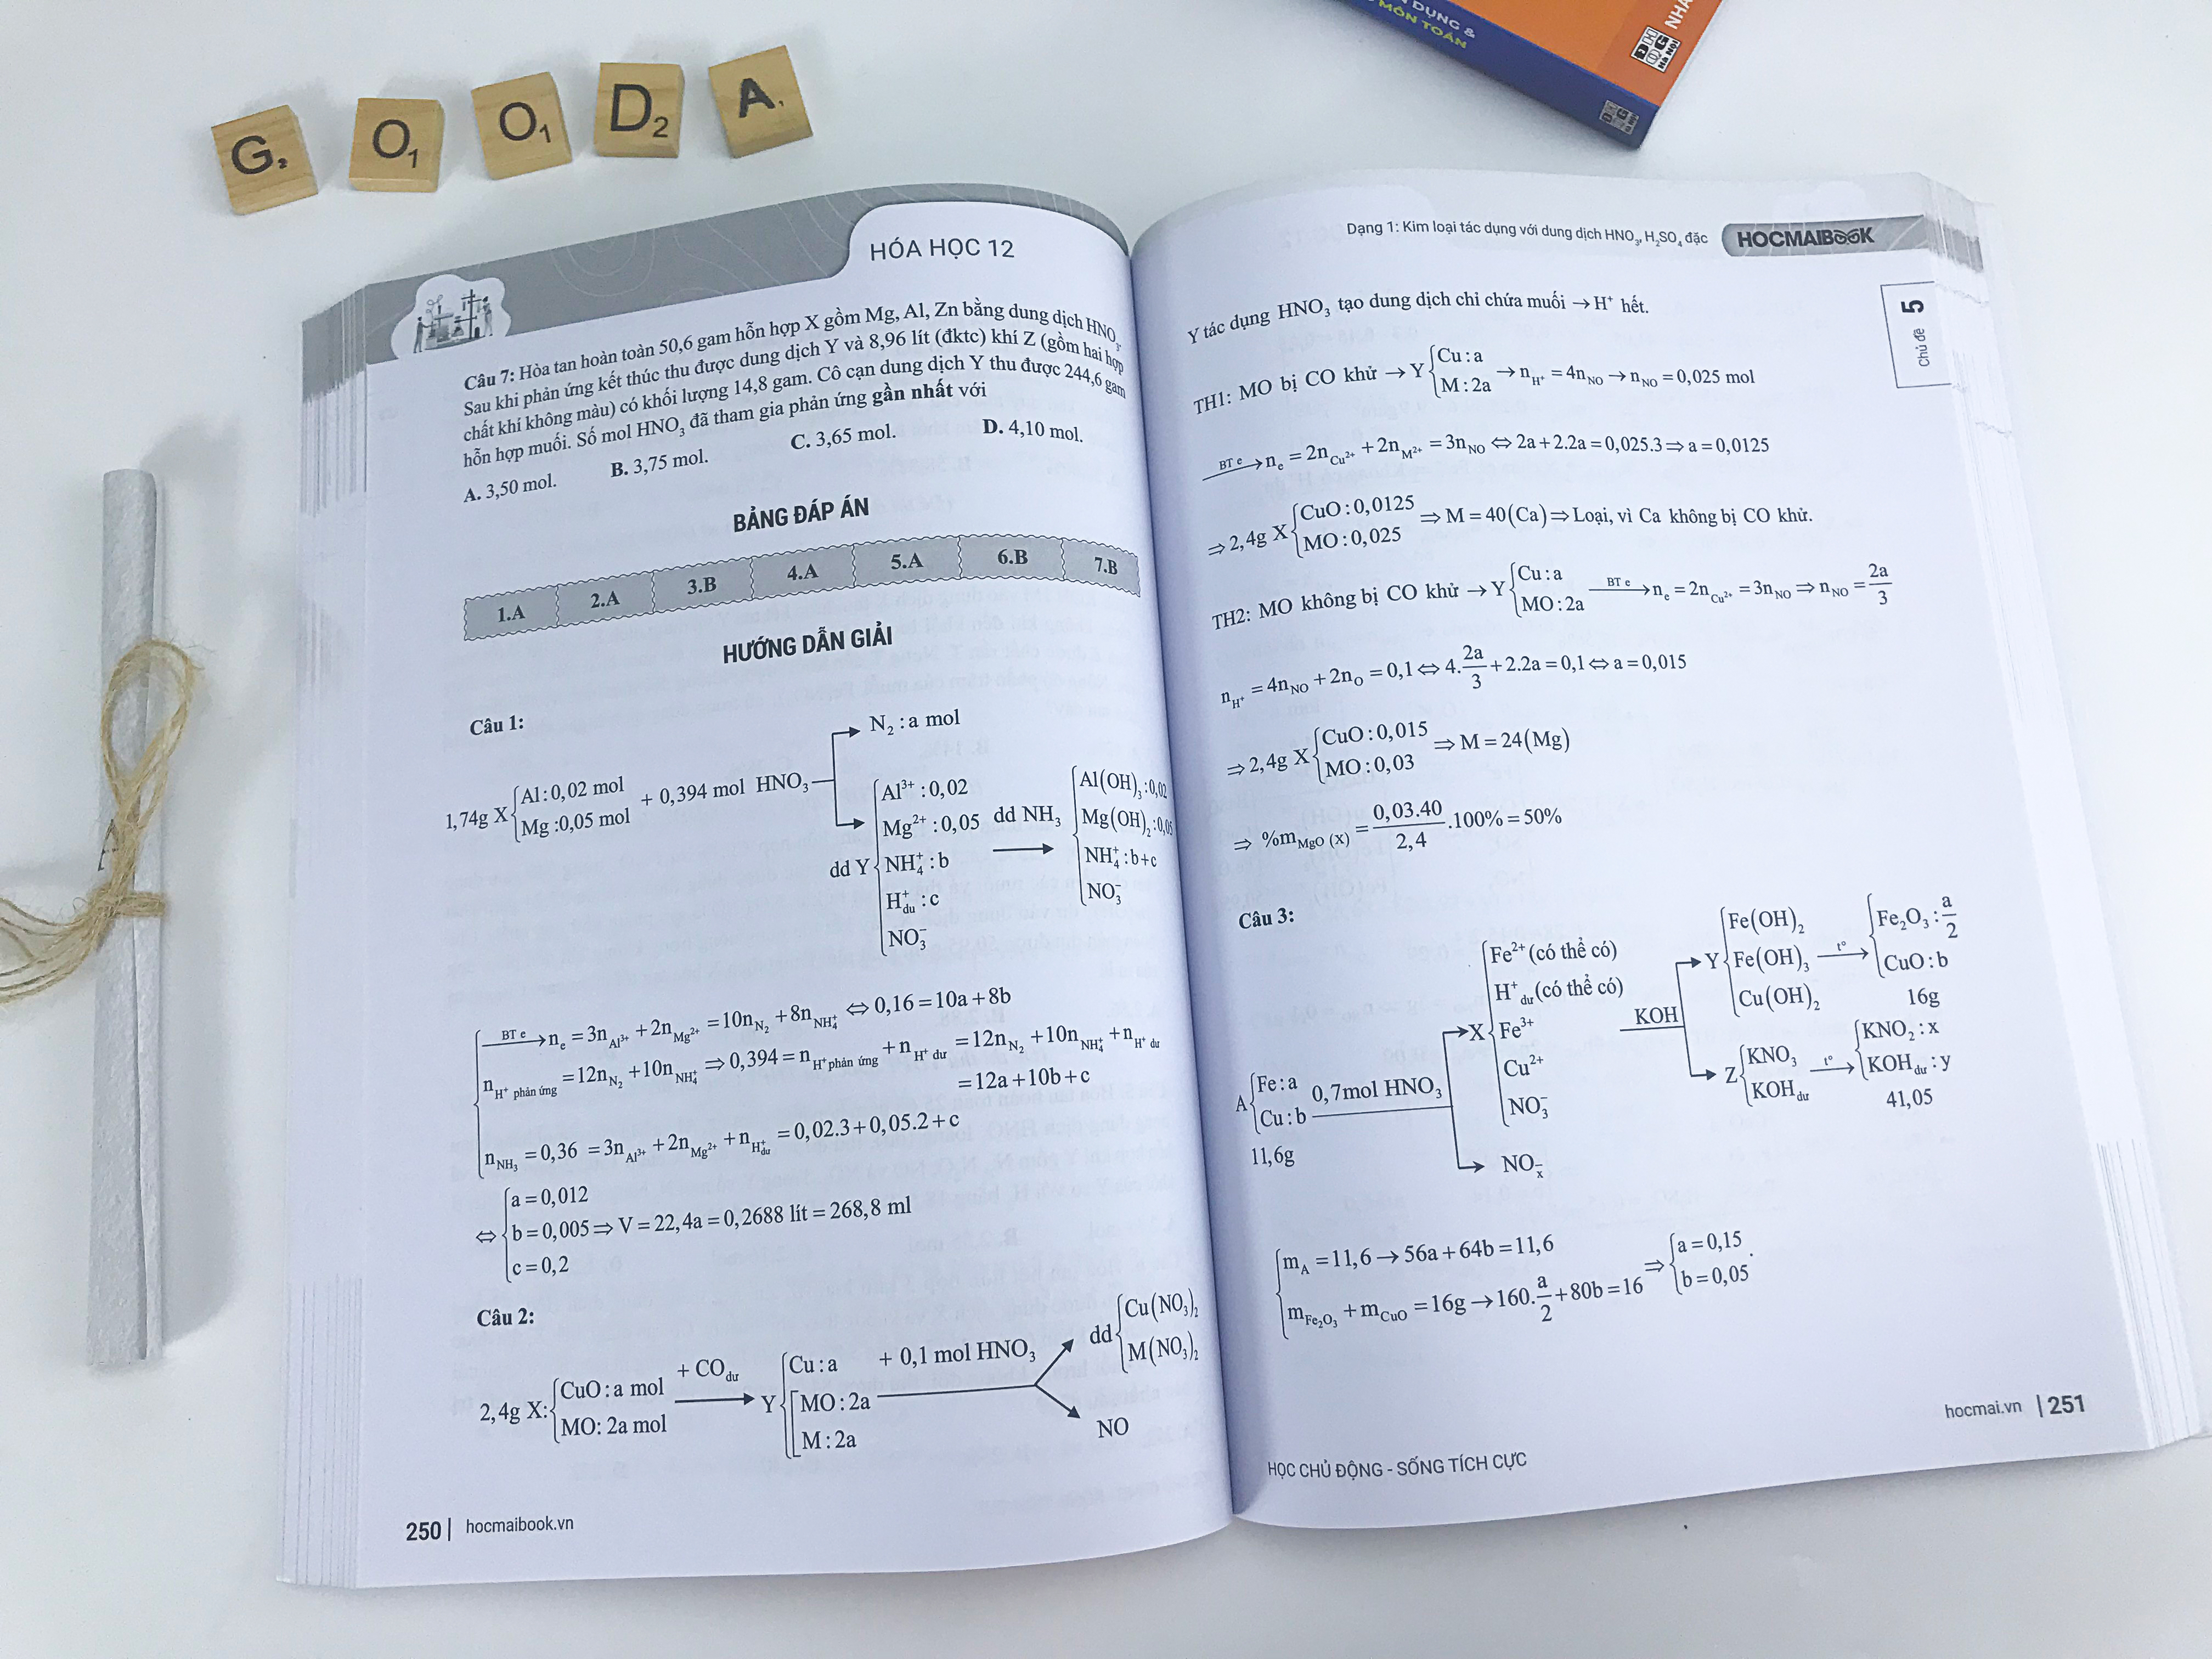 G₂ O₁ O₁ D₂ A₁
DỤNG &
MÔN TOÁN
NHÀ
HÓA HỌC 12
Câu 7: Hòa tan hoàn toàn 50,6 gam hỗn hợp X gồm Mg, Al, Zn bằng dung dịch HNO₃.
Sau khi phản ứng kết thúc thu được dung dịch Y và 8,96 lít (đktc) khí Z (gồm hai hợp
chất khí không màu) có khối lượng 14,8 gam. Cô cạn dung dịch Y thu được 244,6 gam
hỗn hợp muối. Số mol HNO₃ đã tham gia phản ứng gần nhất với
A. 3,50 mol. B. 3,75 mol. C. 3,65 mol. D. 4,10 mol.
BẢNG ĐÁP ÁN
1.A 2.A 3.B 4.A 5.A 6.B 7.B
HƯỚNG DẪN GIẢI
Câu 1:
N₂ : a mol
1,74g X { Al : 0,02 mol
Mg : 0,05 mol
+ 0,394 mol HNO₃
dd Y { Al³⁺ : 0,02
Mg²⁺ : 0,05
NH₄⁺ : b
H⁺dư : c
NO₃⁻
dd NH₃ →
{ Al(OH)₃ : 0,02
Mg(OH)₂ : 0,05
NH₄⁺ : b+c
NO₃⁻
BT e → nₑ = 3n Al³⁺ + 2n Mg²⁺ = 10n N₂ + 8n NH₄⁺ ⇔ 0,16 = 10a + 8b
n H⁺ phản ứng = 12n N₂ + 10n NH₄⁺ ⇒ 0,394 = n H⁺ phản ứng + n H⁺ dư = 12n N₂ + 10n NH₄⁺ + n H⁺ dư
= 12a + 10b + c
n NH₃ = 0,36 = 3n Al³⁺ + 2n Mg²⁺ + n H⁺dư = 0,02.3 + 0,05.2 + c
⇔ { a = 0,012
b = 0,005 ⇒ V = 22,4a = 0,2688 lít = 268,8 ml
c = 0,2
Câu 2:
2,4g X: { CuO : a mol
MO : 2a mol
+ CO dư →
Y { Cu : a
[ MO : 2a
M : 2a
+ 0,1 mol HNO₃
dd { Cu(NO₃)₂
M(NO₃)₂
NO
250 | hocmaibook.vn
Dạng 1: Kim loại tác dụng với dung dịch HNO₃, H₂SO₄ đặc
HOCMAIBOOK
Chủ đề 5
Y tác dụng HNO₃ tạo dung dịch chỉ chứa muối → H⁺ hết.
TH1: MO bị CO khử → Y { Cu : a
M : 2a → n H⁺ = 4n NO → n NO = 0,025 mol
BT e → nₑ = 2n Cu²⁺ + 2n M²⁺ = 3n NO ⇔ 2a + 2.2a = 0,025.3 ⇒ a = 0,0125
⇒ 2,4g X { CuO : 0,0125
MO : 0,025 ⇒ M = 40(Ca) ⇒ Loại, vì Ca không bị CO khử.
TH2: MO không bị CO khử → Y { Cu : a
MO : 2a BT e → nₑ = 2n Cu²⁺ = 3n NO ⇒ n NO = 2a/3
n H⁺ = 4n NO + 2n O = 0,1 ⇔ 4. 2a/3 + 2.2a = 0,1 ⇔ a = 0,015
⇒ 2,4g X { CuO : 0,015
MO : 0,03 ⇒ M = 24(Mg)
⇒ %m MgO (X) = 0,03.40/2,4 .100% = 50%
Câu 3:
A { Fe : a
Cu : b
11,6g
0,7mol HNO₃
X { Fe²⁺ (có thể có)
H⁺dư (có thể có)
Fe³⁺
Cu²⁺
NO₃⁻
NOₓ
KOH
Y { Fe(OH)₂
Fe(OH)₃
Cu(OH)₂
t° →
{ Fe₂O₃ : a/2
CuO : b
16g
Z { KNO₃
KOH dư
t° →
{ KNO₂ : x
KOH dư : y
41,05
{ m A = 11,6 → 56a + 64b = 11,6
m Fe₂O₃ + m CuO = 16g → 160. a/2 + 80b = 16
⇒ { a = 0,15
b = 0,05 .
HỌC CHỦ ĐỘNG - SỐNG TÍCH CỰC
hocmai.vn | 251